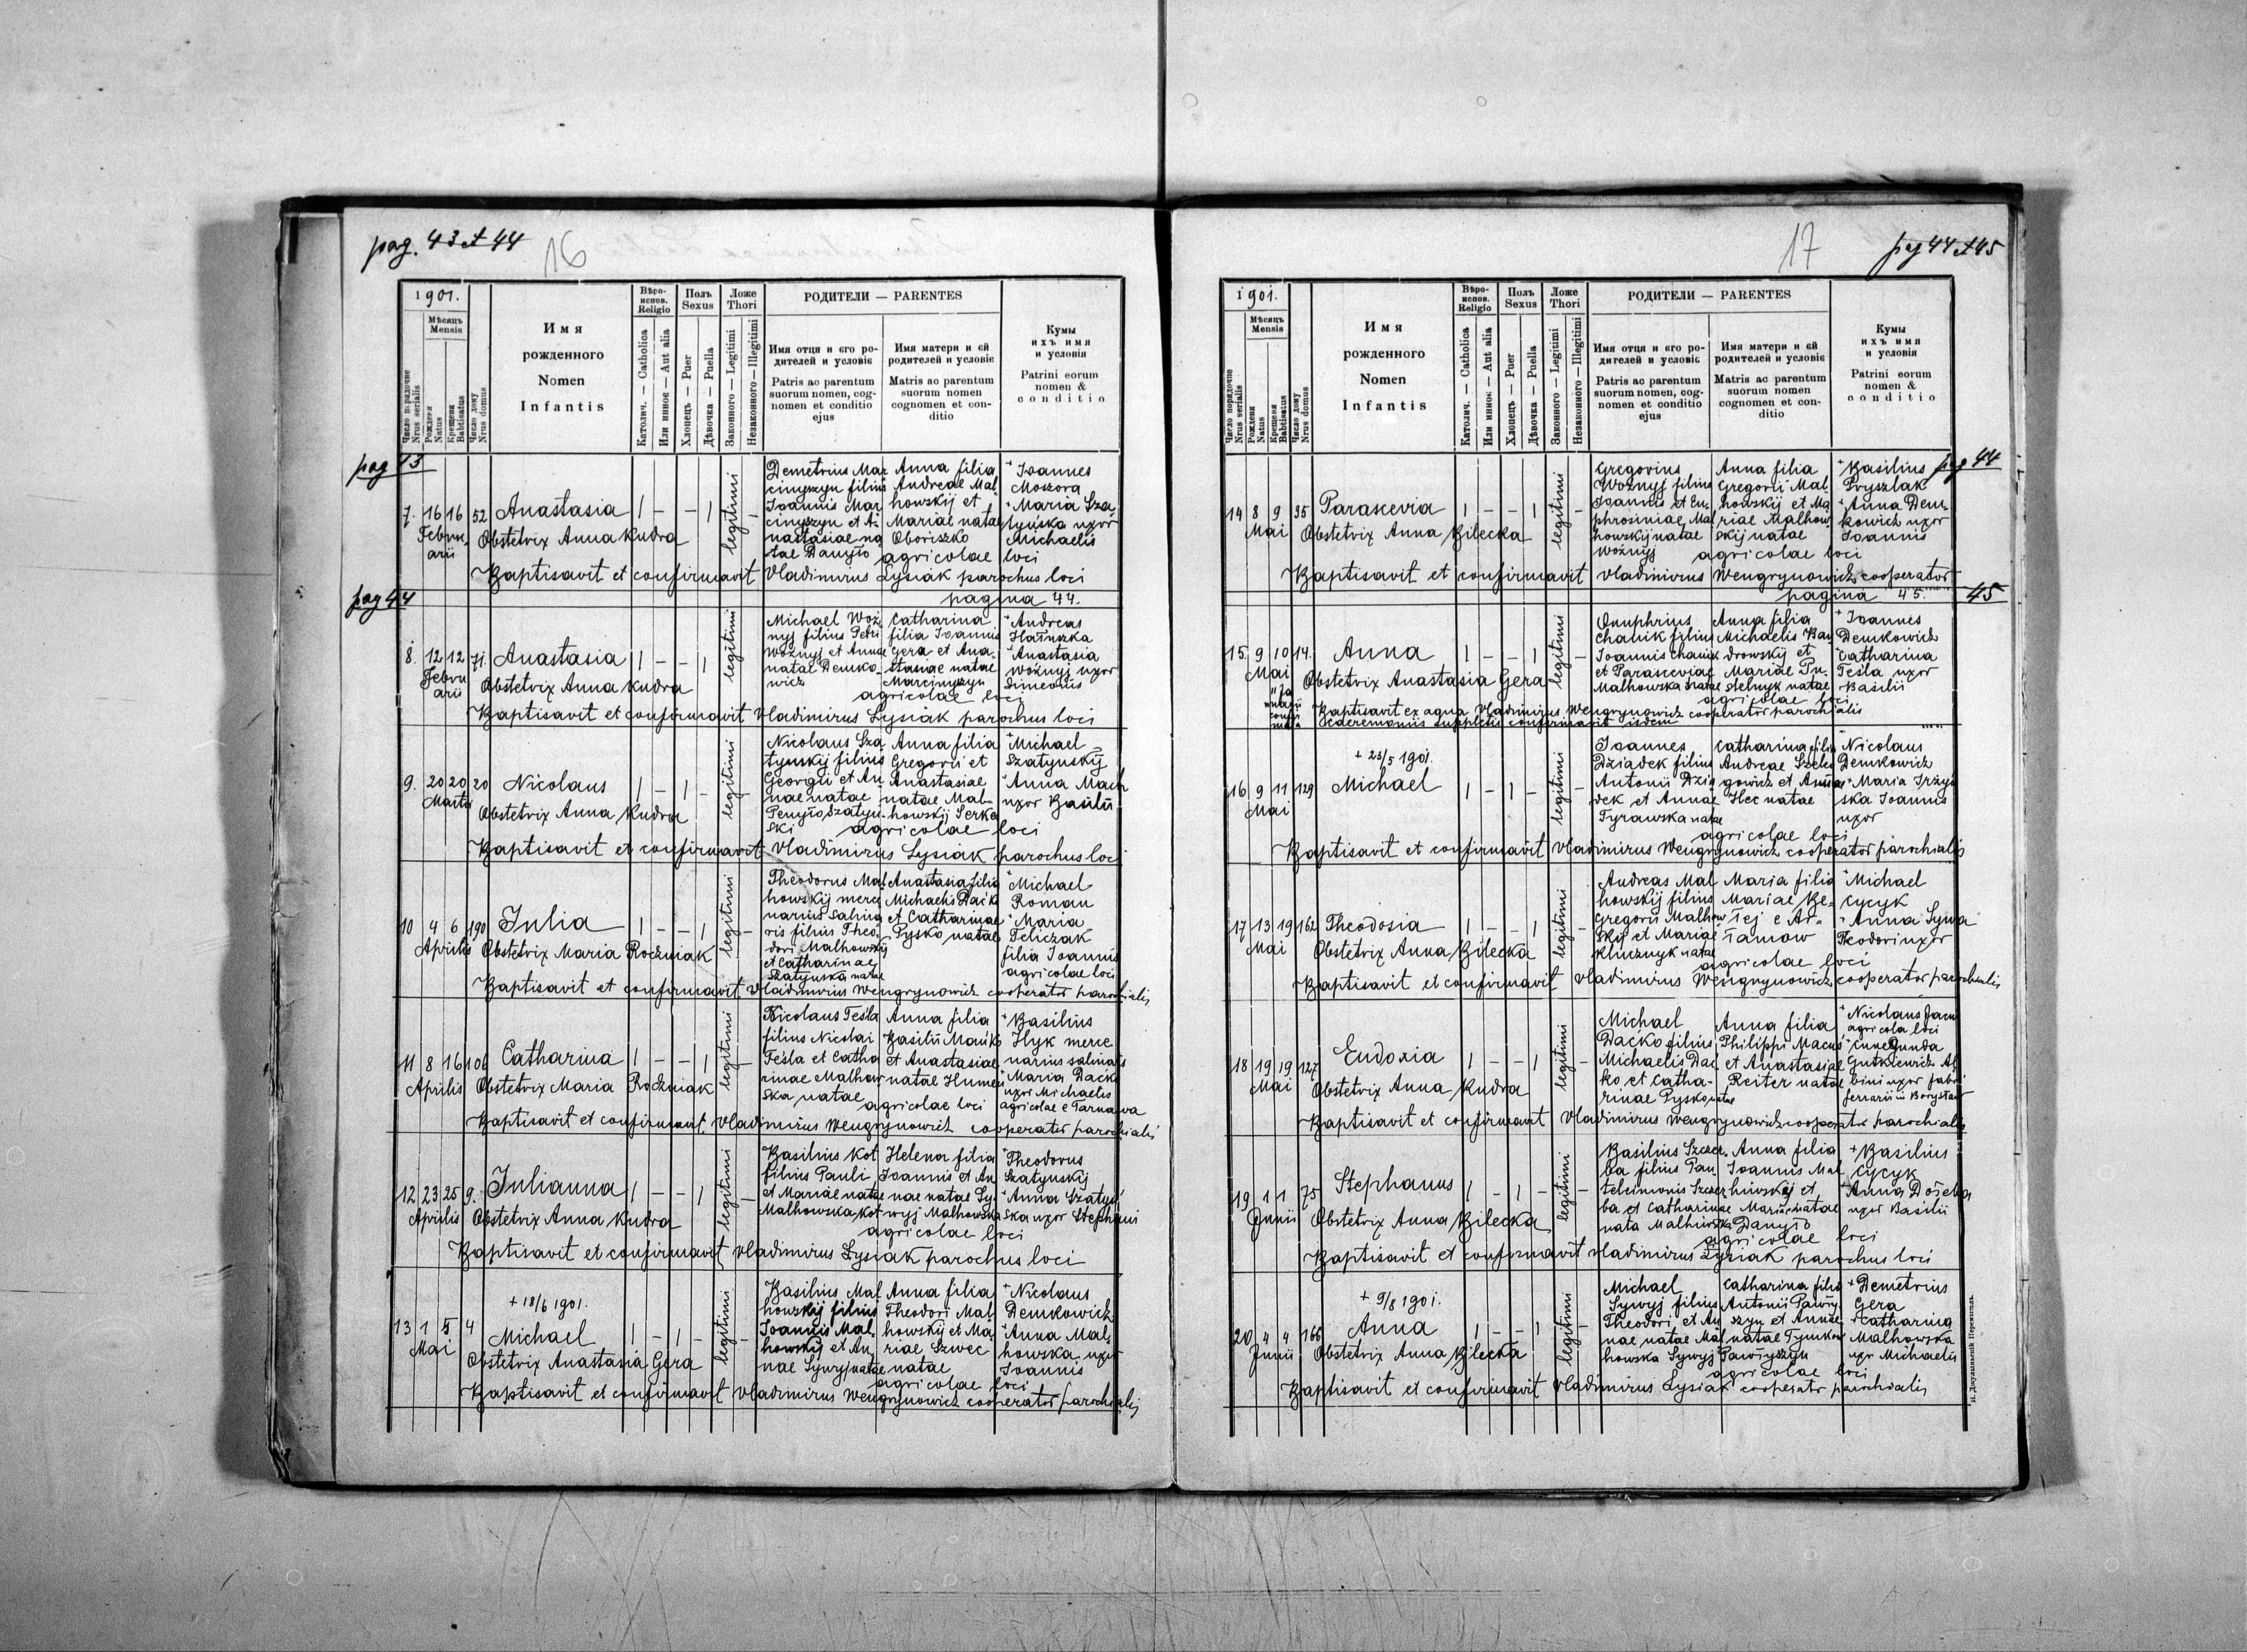 pag. 43 et 44
16
1901.
Мѣсяцъ
Mensis
Число порядочне
Nrus serialis
Рожденя
Natus
Крещеня
Babtisatus
Число дому
Nrus domus
Имя
рожденного
Nomen
Infantis
Вѣро-
испов.
Religio
Католич. — Catholica
Или инноє — Aut alia
Полъ
Sexus
Хлопецъ — Puer
Дѣвочка — Puella
Ложе
Thori
Законного — Legitimi
Незаконного — Illegitimi
РОДИТЕЛИ — PARENTES
Имя отця и єго ро-
дителей и условіє
Patris ac parentum
suorum nomen, cog-
nomen et conditio
ejus
Имя матери и єй
родителей и условіє
Matris ac parentum
suorum nomen
cognomen et con-
ditio
Кумы
ихъ имя
и условія
Patrini eorum
nomen &
conditio
pag 43
7. 16 16 52 Anastasia 1 – – 1 legitimi –
Februarii
Obstetrix Anna Kudra
Demetrius Mar
cinyszyn filius
Joannis Mar
cinyszyn et A-
nastasiae na
tae Danyło
Anna filia
Andreae Mal
howskij et
Mariae natae
Oboriszko
agricolae loci
+ Joannes
Moszora
+ Maria Sza
tyńska uxor
Michaelis
Baptisavit et confirmavit Vladimirus Lysiak parochus loci
pag 44
pagina 44.
8. 12 12 71. Anastasia 1 – – 1 legitimi
Februarii
Obstetrix Anna Kudra
Michael Woź
nyj filius Petri
Woźnyj et Annae
natae Demko
wicz
Catharina
filia Joannis
Gera et Ana-
stasiae natae
Marcinyszyn
agricolae loci
+ Andreas
Hałuszka
+ Anastasia
Woźnyj uxor
Simeonis
Baptisavit et confirmavit Vladimirus Lysiak parochus loci
9. 20 20 20 Nicolaus 1 – 1 – legitimi
Martii
Obstetrix Anna Kudra
Nicolaus Sza
tynskij filius
Georgii et An
nae natae
Penyło Szatyn-
ski
Anna filia
Gregorii et
Anastasiae
natae Mal-
howskij Serka
agricolae loci
+ Michael
Szatynskij
+ Anna Mach
uxor Basilii
Baptisavit et confirmavit Vladimirus Lysiak parochus loci
10 4 6 190 Julia 1 – – 1 – legitimi
Aprilis
Obstetrix Maria Rodzniak
Theodorus Mal
howskij merce
narius salina
ris filius Theo-
dori Malhowskij
et Catharinae
Szatynska natae
Anastasia filia
Michaelis Daćk
et Catharinae
Pysko natae
+ Michael
Roman
+ Maria
Teliczak
filia Joannis
agricolae loci
Baptisavit et confirmavit Vladimirus Wengrynowicz cooperator parochialis
11 8 16 106 Catharina 1 – – 1 – legitimi
Aprilis
Obstetrix Maria Rodzniak
Nicolaus Teśla
filius Nicolai
Teśla et Catha
rinae Malhow
ska natae
Anna filia
Basilii Mańk
et Anastasiae
natae Humen
agricolae loci
+ Basilius
Hyk merce
narius salinaris
+ Maria Dacko
uxor Michaelis
agricolae e Tarnawa
Baptisavit et confirmavit. Vladimirus Wengrynowicz cooperator parochialis
12 23 25 9. Julianna 1 – – 1 – legitimi
Aprilis
Obstetrix Anna Kudra
Basilius Kot
filius Pauli
et Mariae natae
Malhowska Kot
Helena filia
Joannis et An
nae natae Sy-
wyj Malhowska
agricolae loci
+ Theodorus
Szatynskij
+ Anna Szatyń
ska uxor Stephani
Baptisavit et confirmavit Vladimirus Lysiak parochus loci
+ 18/6 1901.
13 1 5 4 Michael 1 – 1 – legitimi
Mai
Obstetrix Anastasia Gera
Basilius Mal
howskij filius
Joannis Mal-
howskij et An-
nae Sywyj natae
Anna filia
Theodori Mal
howskij et Ma-
riae Szwec
natae
agricolae loci
+ Nicolaus
Demkowich
+ Anna Mal-
howska uxor
Joannis
Baptisavit et confirmavit Vladimirus Wengrynowicz cooperator parochialis
17
pag 44 et 45
1901.
Мѣсяцъ
Mensis
Число порядочне
Nrus serialis
Рожденя
Natus
Крещеня
Babtisatus
Число дому
Nrus domus
Имя
рожденного
Nomen
Infantis
Вѣро-
испов.
Religio
Католич. — Catholica
Или инноє — Aut alia
Полъ
Sexus
Хлопецъ — Puer
Дѣвочка — Puella
Ложе
Thori
Законного — Legitimi
Незаконного — Illegitimi
РОДИТЕЛИ — PARENTES
Имя отця и єго ро-
дителей и условіє
Patris ac parentum
suorum nomen, cog-
nomen et conditio
ejus
Имя матери и єй
родителей и условіє
Matris ac parentum
suorum nomen
cognomen et con-
ditio
Кумы
ихъ имя
и условія
Patrini eorum
nomen &
conditio
pag 44
14 8 9 35 Parascevia 1 – – 1 legitimi –
Mai
Obstetrix Anna Bilecka
Gregorius
Woźnyj filius
Joannis et Eu-
phrosiniae Mal
howskij natae
Woźnyj
Anna filia
Gregorii Mal
howskij et Ma
riae Malhow
skij natae
agricolae loci
+ Basilius
Pryszlak
+ Anna Dem-
kowich uxor
Joannis
Baptisavit et confirmavit Vladimirus Wengrynowicz cooperator
pagina 45.
45
15 9 10 14. Anna 1 – – 1 legitimi –
Mai
Obstetrix Anastasia Gera
Onuphrius
Chanik filius
Joannis Chanik
et Parasceviae
Malhowska natae
Anna filia
Michaelis Ban
drowskij et
Mariae Pu-
stelnyk natae
agricolae loci
+ Joannes
Demkowich
+ Catharina
Teśla uxor
Basilii
Baptisavit ex aqua Vladimirus Wengrynowicz cooperator parochialis
et ceremoniis suppletis confirmavit isdem
+ 23/5 1901.
16 9 11 129 Michael 1 – 1 – – legitimi
Mai
Joannes
Dziadek filius
Antonii Dzia
dek et Annae
Tyrawska natae
Catharina filia
Andreae Szele
gowich et Annae
Hec natae
agricolae loci
+ Nicolaus
Demkowich
+ Maria
ska Joannis
uxor
Baptisavit et confirmavit Vladimirus Wengrynowicz cooperator parochialis
17 13 19 162 Theodosia 1 – – 1 – legitimi
Mai
Obstetrix Anna Bilecka
Andreas Mal
howskij filius
Gregorii Malhow
skij et Mariae
Klucznyk natae
Maria filia
Mariae Be-
łej e Ar-
łamow
agricolae loci
+ Michael
Cycyk
+ Anna Sywa
Theodori uxor
Baptisavit et confirmavit Vladimirus Wengrynowicz cooperator parochialis
18 19 19 127 Eudoxia 1 – – 1 – legitimi
Mai
Obstetrix Anna Kudra
Michael
Daćko filius
Michaelis Dać
ko et Catha-
rinae Pysko natae
Anna filia
Philippi Macus
et Anastasiae
Reiter natae
+ Nicolaus
agricola loci
+ Cunegunda
Gutkiewich Al
bini uxor fabri
ferrarii in Borysław
Baptisavit et confirmavit Vladimirus Wengrynowicz cooperator parochialis
19 1 1 75 Stephanus 1 – 1 – – legitimi
Junii
Obstetrix Anna Bilecka
Basilius Szczer
ba filius Pan
teleimonis Szczer
ba et Catharinae
nata Malhiwska
Anna filia
Joannis Mal
hiwskij et
Mariae natae
Danyło
agricolae loci
+ Basilius
Cycyk
+ Anna Dołeba
uxor Basilii
Baptisavit et confirmavit Vladimirus Lysiak parochus loci
+ 9/8 1901.
20 4 4 166 Anna 1 – – 1 – legitimi
Junii
Obstetrix Anna Bilecka
Michael
Sywyj filius
Theodori et An
nae natae Mal
howska Sywyj
Catharina filia
Antonii Pawły
szyn et Annae
natae Tymkow
Pawłyszyn
agricolae loci
+ Demetrius
Gera
+ Catharina
Malhowska
uxr Michaelis
Baptisavit et confirmavit Vladimirus Lysiak cooperatr parochialis